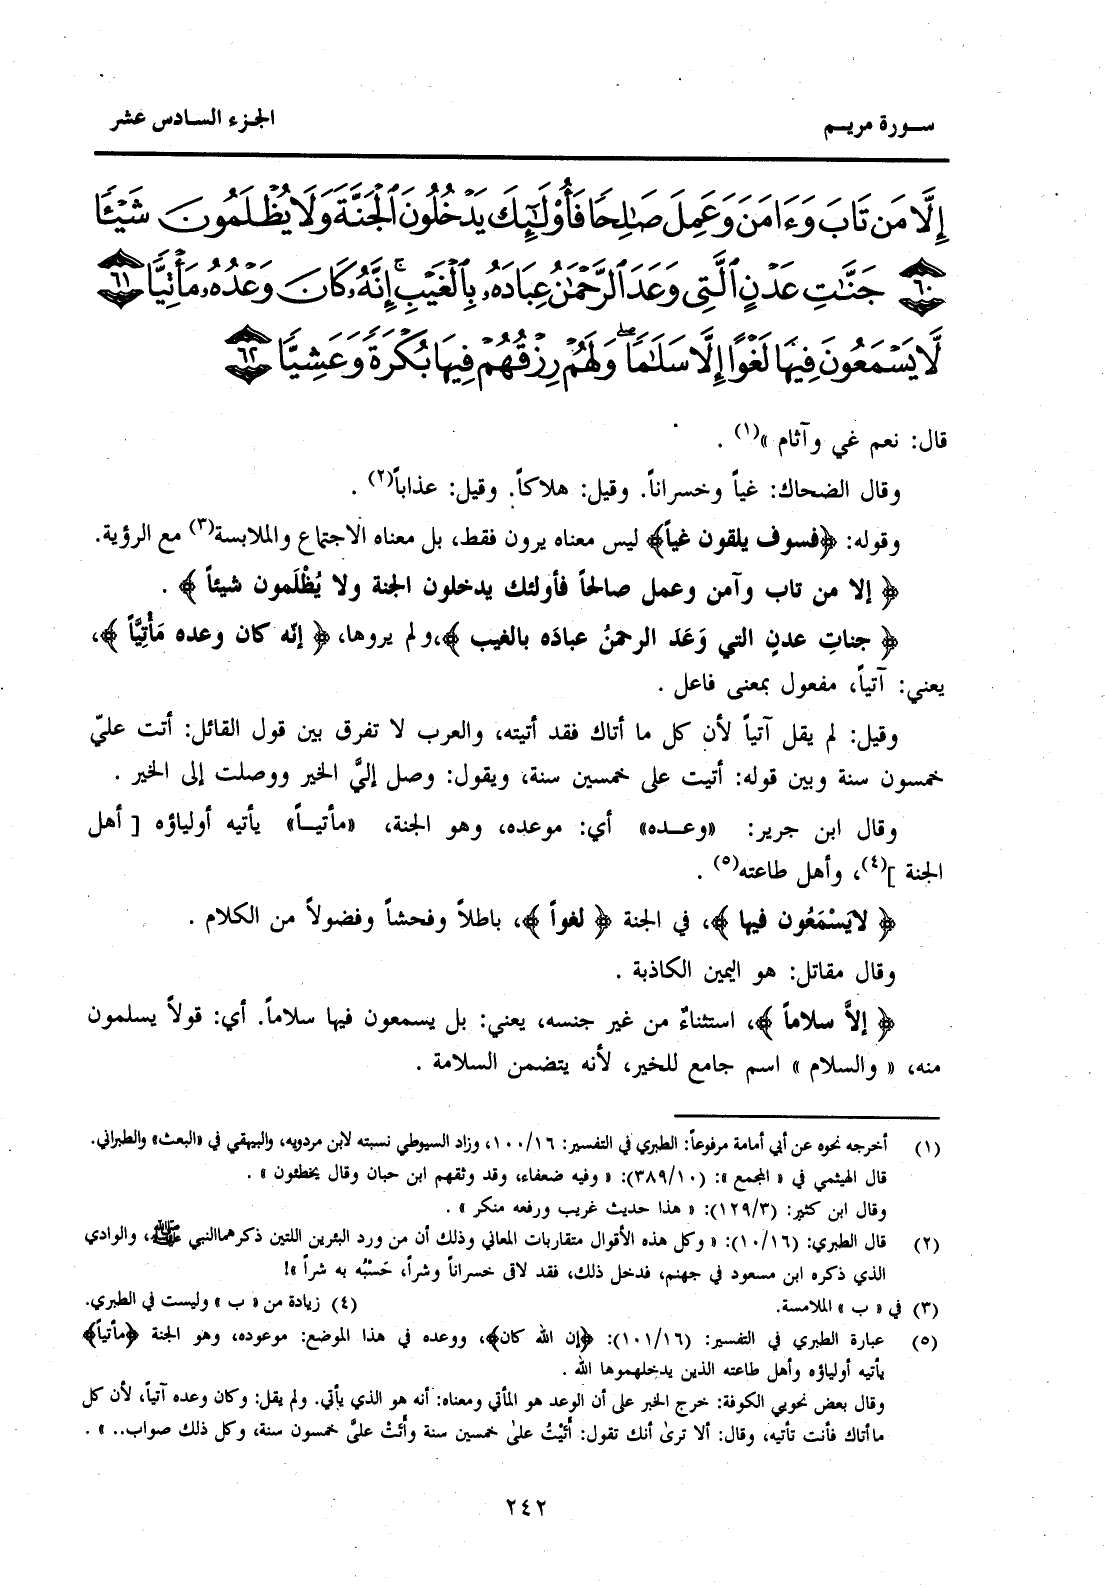 سورة مريم
الجزء السادس عشر
إِلَّا مَن تَابَ وَءَامَنَ وَعَمِلَ صَٰلِحًا فَأُوْلَٰٓئِكَ يَدْخُلُونَ ٱلْجَنَّةَ وَلَا يُظْلَمُونَ شَيْـًٔا
٦٠ جَنَّٰتِ عَدْنٍ ٱلَّتِى وَعَدَ ٱلرَّحْمَٰنُ عِبَادَهُۥ بِٱلْغَيْبِ ۚ إِنَّهُۥ كَانَ وَعْدُهُۥ مَأْتِيًّا ٦١
لَّا يَسْمَعُونَ فِيهَا لَغْوًا إِلَّا سَلَٰمًا ۖ وَلَهُمْ رِزْقُهُمْ فِيهَا بُكْرَةً وَعَشِيًّا ٦٢
قال: نعم غي وآثام »(١) .
وقال الضحاك: غياً وخسراناً. وقيل: هلاكاً. وقيل: عذاباً(٢) .
وقوله: ﴿فسوف يلقون غياً﴾ ليس معناه يرون فقط، بل معناه الاجتماع والملابسة(٣) مع الرؤية.
﴿ إلا من تاب وآمن وعمل صالحاً فأولئك يدخلون الجنة ولا يُظْلَمون شيئاً ﴾ .
﴿ جناتِ عدنٍ التي وَعَدَ الرحمنُ عبادَه بالغيب ﴾،ولم يروها، ﴿ إنّه كان وعده مَأْتِيَّاً ﴾،
يعني: آتياً، مفعول بمعنى فاعل .
وقيل: لم يقل آتياً لأن كل ما أتاك فقد أتيته، والعرب لا تفرق بين قول القائل: أتت عليّ
خمسون سنة وبين قوله: أتيت على خمسين سنة، ويقول: وصل إليَّ الخير ووصلت إلى الخير .
وقال ابن جرير: «وعـده» أي: موعده، وهو الجنة، «مأتيـاً» يأتيه أولياؤه [ أهل
الجنة ](٤)، وأهل طاعته(٥) .
﴿ لايَسْمَعُون فيها ﴾، في الجنة ﴿ لغواً ﴾، باطلاً وفحشاً وفضولاً من الكلام .
وقال مقاتل: هو اليمين الكاذبة .
﴿ إلاَّ سلاماً ﴾، استثناءٌ من غير جنسه، يعني: بل يسمعون فيها سلاماً. أي: قولاً يسلمون
منه، « والسلام » اسم جامع للخير، لأنه يتضمن السلامة .
(١) أخرجه نحوه عن أبي أمامة مرفوعاً: الطبري في التفسير: ١٠٠/١٦، وزاد السيوطي نسبته لابن مردويه، والبيهقي في «البعث» والطبراني.
قال الهيثمي في « المجمع »: (٣٨٩/١٠): « وفيه ضعفاء، وقد وثقهم ابن حبان وقال يخطئون » .
وقال ابن كثير: (١٢٩/٣): « هذا حديث غريب ورفعه منكر » .
(٢) قال الطبري: (١٠/١٦): « وكل هذه الأقوال متقاربات المعاني وذلك أن من ورد البئرين اللتين ذكرهما النبي ﷺ، والوادي
الذي ذكره ابن مسعود في جهنم، فدخل ذلك، فقد لاقى خسراناً وشراً، حَسْبُه به شراً »!
(٣) في « ب » الملامسة.
(٤) زيادة من « ب » وليست في الطبري.
(٥) عبارة الطبري في التفسير: (١٠١/١٦): ﴿إن الله كان﴾، ووعده في هذا الموضع: موعوده، وهو الجنة ﴿مأتياً﴾
يأتيه أولياؤه وأهل طاعته الذين يدخلهموها الله .
وقال بعض نحويي الكوفة: خرج الخبر على أن الوعد هو المأتي ومعناه: أنه هو الذي يأتي. ولم يقل: وكان وعده آتياً، لأن كل
ما أتاك فأنت تأتيه، وقال: ألا ترىٰ أنك تقول: أَتَيْتُ علىٰ خمسين سنة وأَتَتْ عليَّ خمسون سنة، وكل ذلك صواب.. » .
٢٤٢